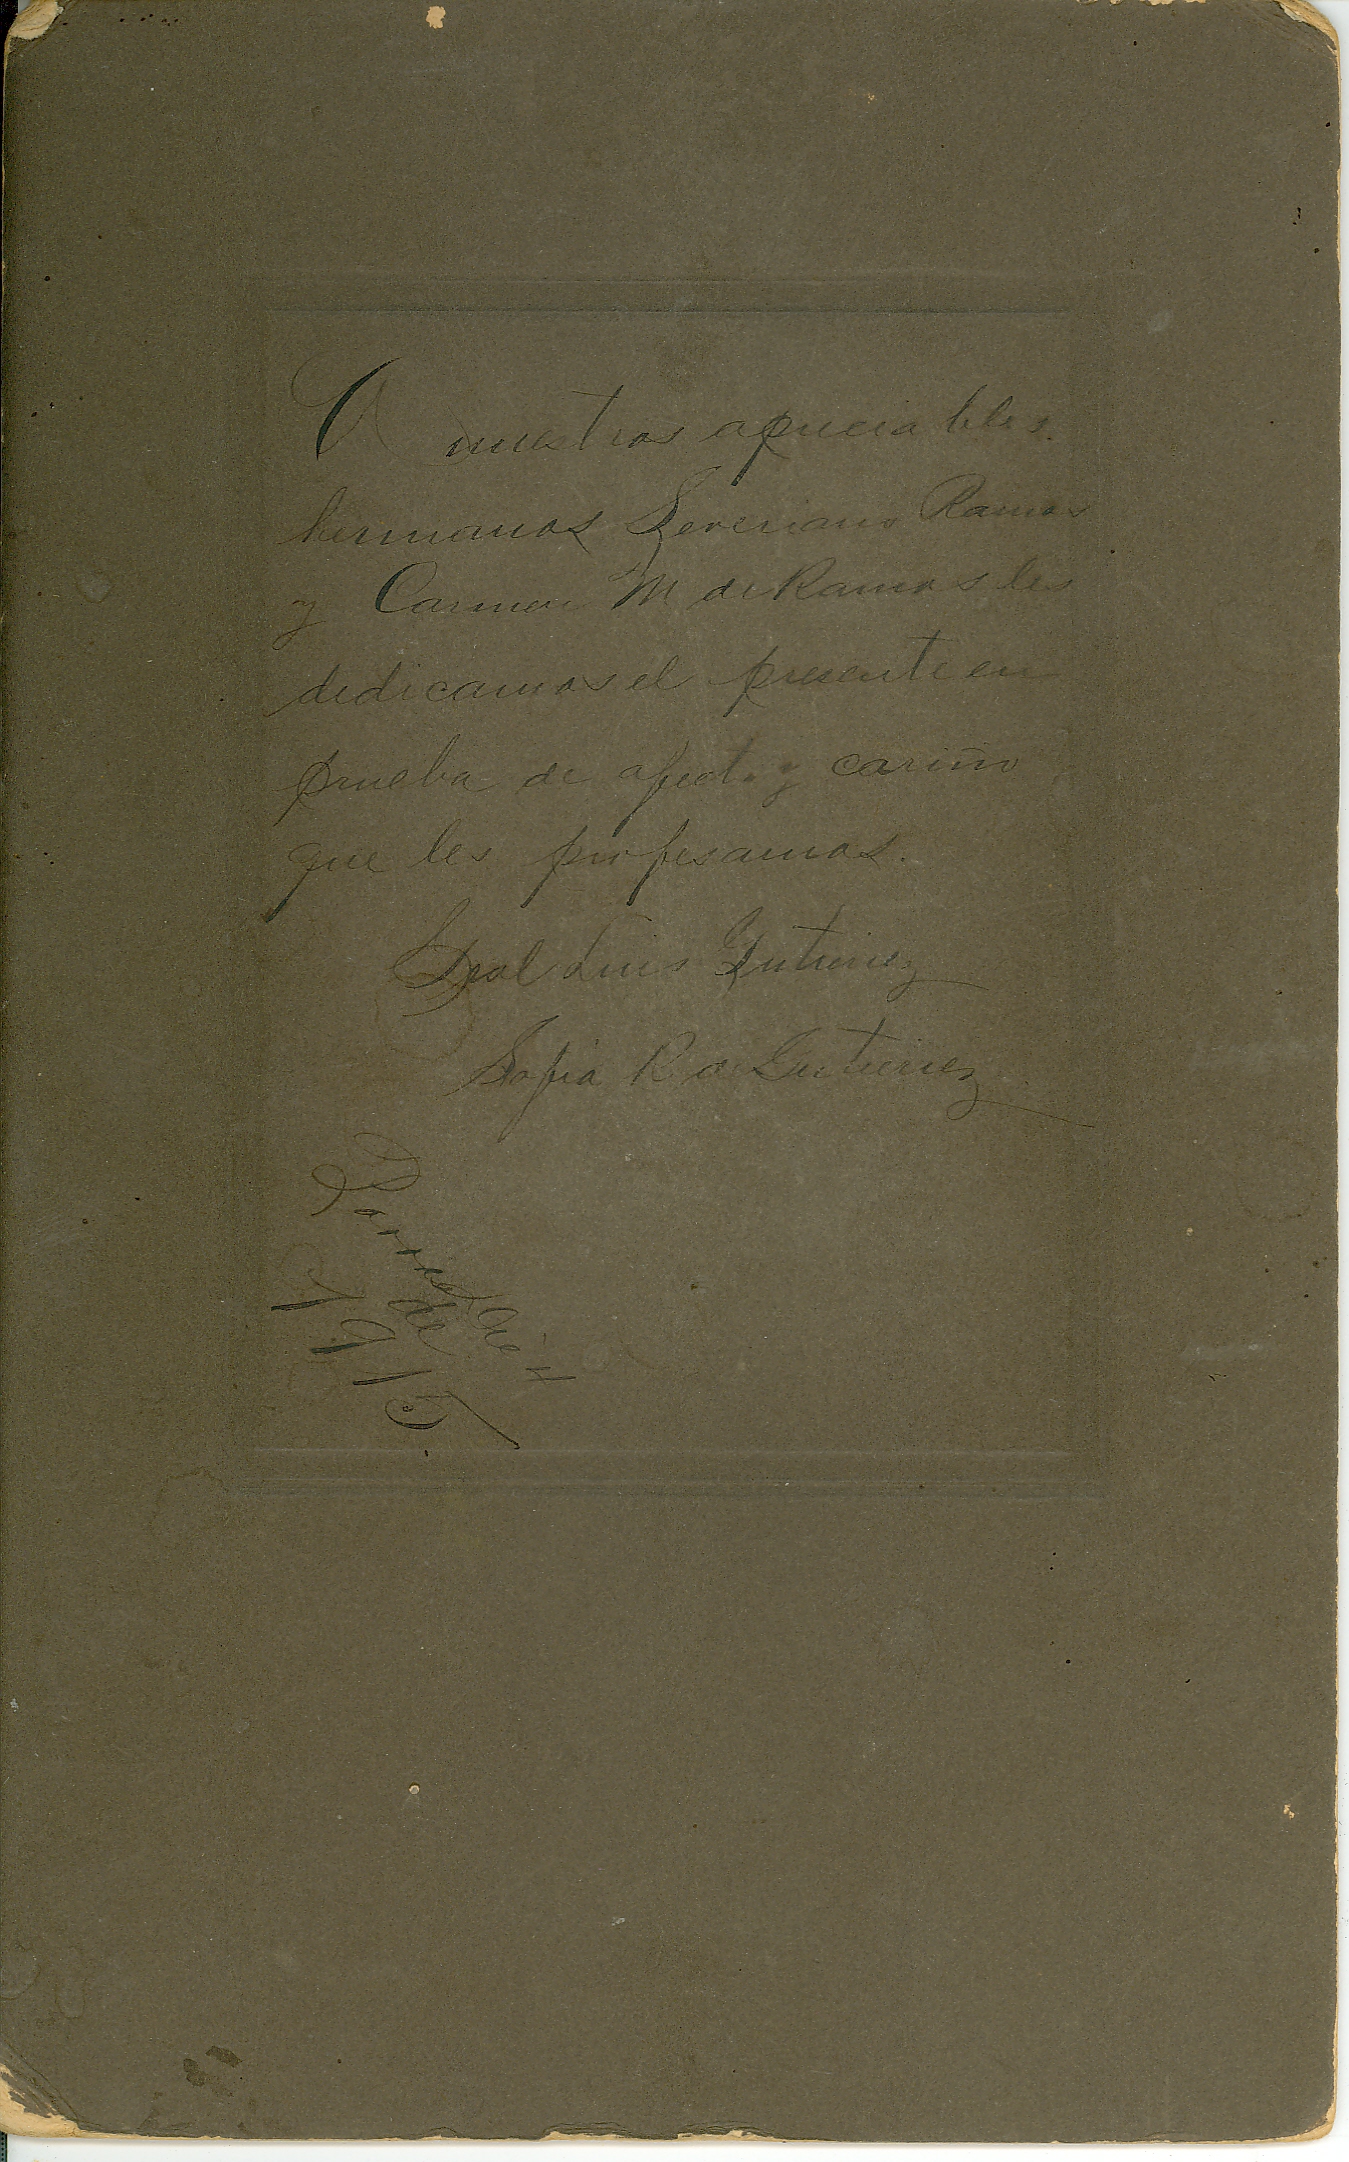 A nuestros apreciables
hermanos Severiano Ramos
y Carmen M de Ramos les
dedicamos el presente en
prueba de afecto y cariño
que les profesamos.
Gral Luis Gutierrez
Sofia R de Gutierrez
Parras
de
1915.